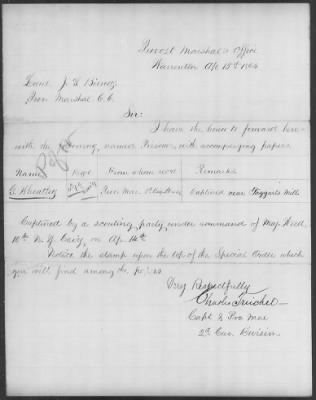 Provost Marshal's Office
Warrenton Ap 15th 1864
Lieut J. G. Birney
Prov. Marshal C.C.
Sir:
I have the honor to forward here-
with the following named Prisoner, with accompanying papers
Name Rank From whom recd Remarks
G. Wheatley Prov. Mar. Captured near Taggarts Mills
Captured by a scouting party under command of Maj.
10th N. Y. Cavy on Ap 14th
Notice the stamp upon the top of the Special Order which
you will find among the papers
Very Respectfully
Charles Treichel
Capt & Pro Mar
2d Cav. Division